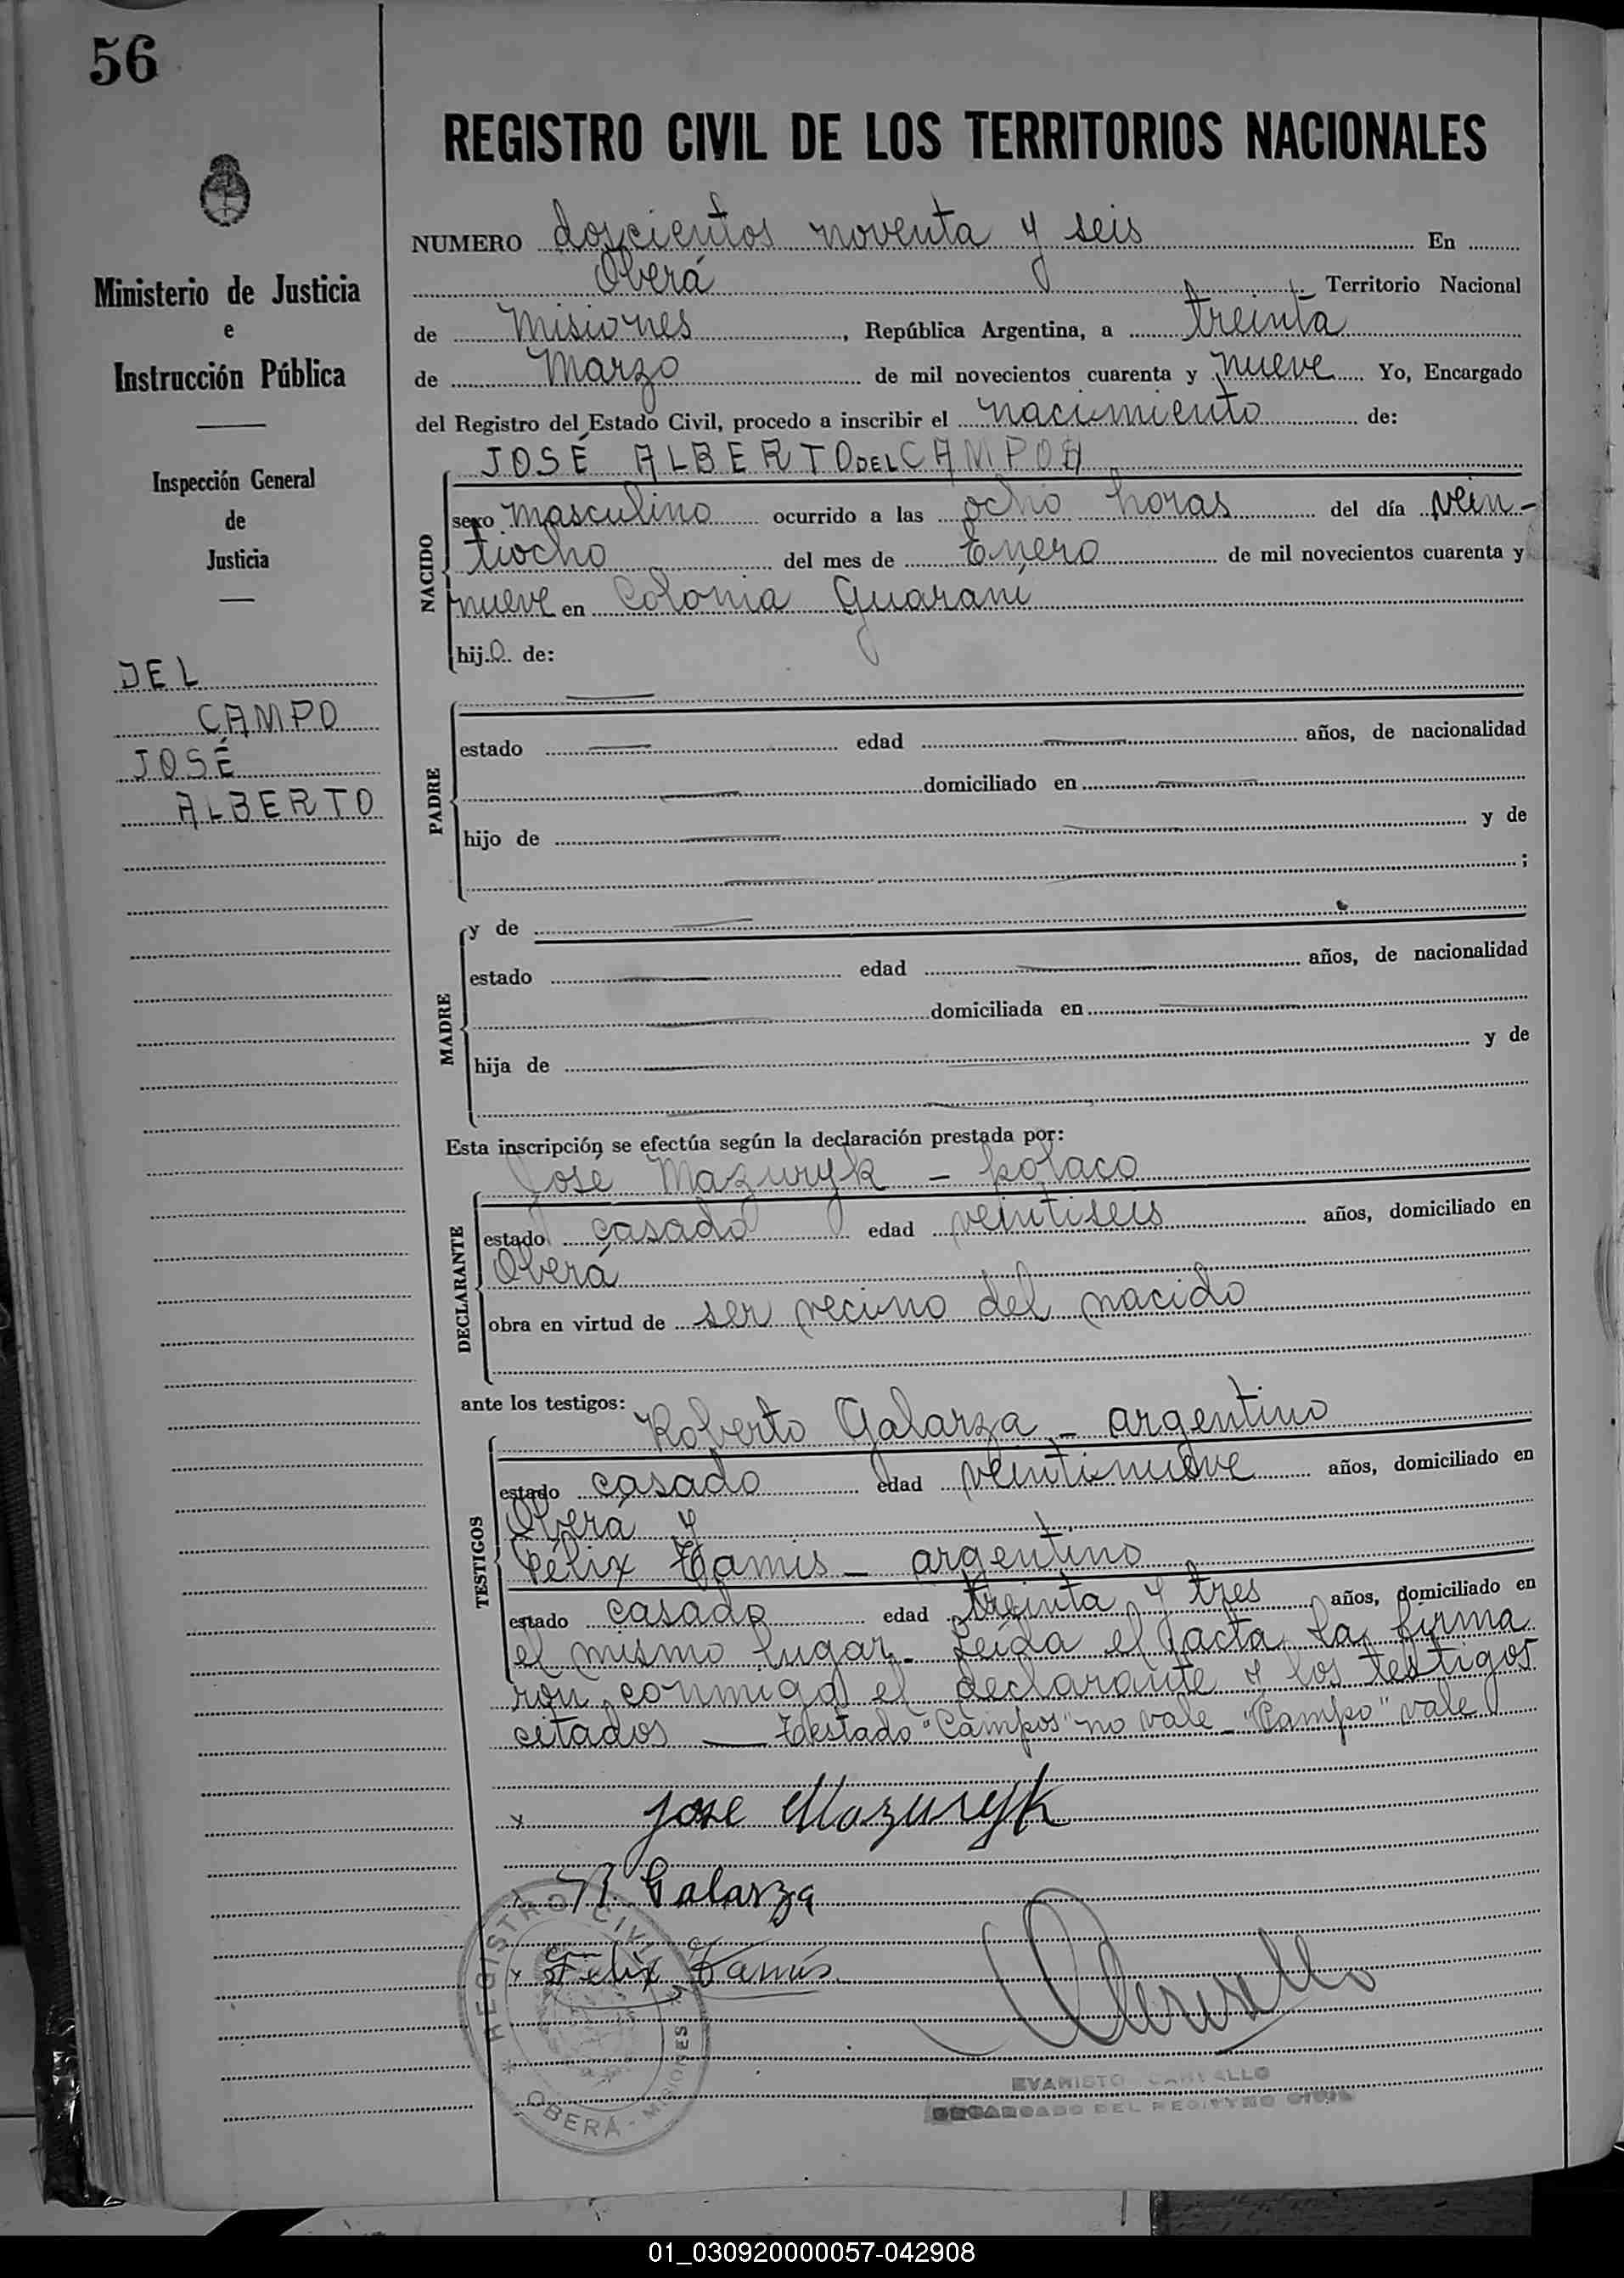 56
REGISTRO CIVIL DE LOS TERRITORIOS NACIONALES
Ministerio de Justicia
e
Instrucción Pública
Inspección General
de
Justicia
DEL
CAMPO
JOSÉ
ALBERTO
NUMERO doscientos noventa y seis En
Oberá Territorio Nacional
de Misiones, República Argentina, a treinta
de Marzo de mil novecientos cuarenta y nueve Yo, Encargado
del Registro del Estado Civil, procedo a inscribir el nacimiento de:
JOSÉ ALBERTO DEL CAMPO
NACIDO
sexo masculino ocurrido a las ocho horas del día vein-
tiocho del mes de Enero de mil novecientos cuarenta y
nueve en Colonia Guaraní
hijo de:
PADRE
estado edad años, de nacionalidad
domiciliado en
hijo de y de
;
MADRE
y de
estado edad años, de nacionalidad
domiciliada en
hija de y de
Esta inscripción se efectúa según la declaración prestada por:
José Mazuryk - polaco
DECLARANTE
estado casado edad veintiseis años, domiciliado en
Oberá
obra en virtud de ser vecino del nacido
ante los testigos:
Roberto Galarza - argentino
TESTIGOS
estado casado edad veintinueve años, domiciliado en
Oberá y
Félix Tamis - argentino
estado casado edad treinta y tres años, domiciliado en
el mismo lugar. Leída el acta la firma
ron conmigo el declarante y los testigos
citados — Testado "Campos" no vale - "Campo" vale
x Jose Mazuryk
R. Galarza
x Felix Tamis
REGISTRO CIVIL
OBERÁ - MISIONES
EVARISTO CARVALLO
ENCARGADO DEL REGISTRO CIVIL
01_030920000057-042908